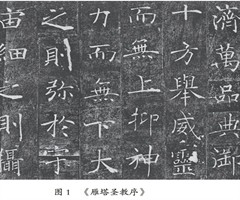 濟萬品典御
十方舉威靈
而無上抑神
力而無下大
之則弥於宇
宙細之則攝
图 1 《雁塔圣教序》